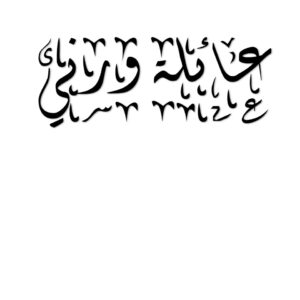 عائلة ورني